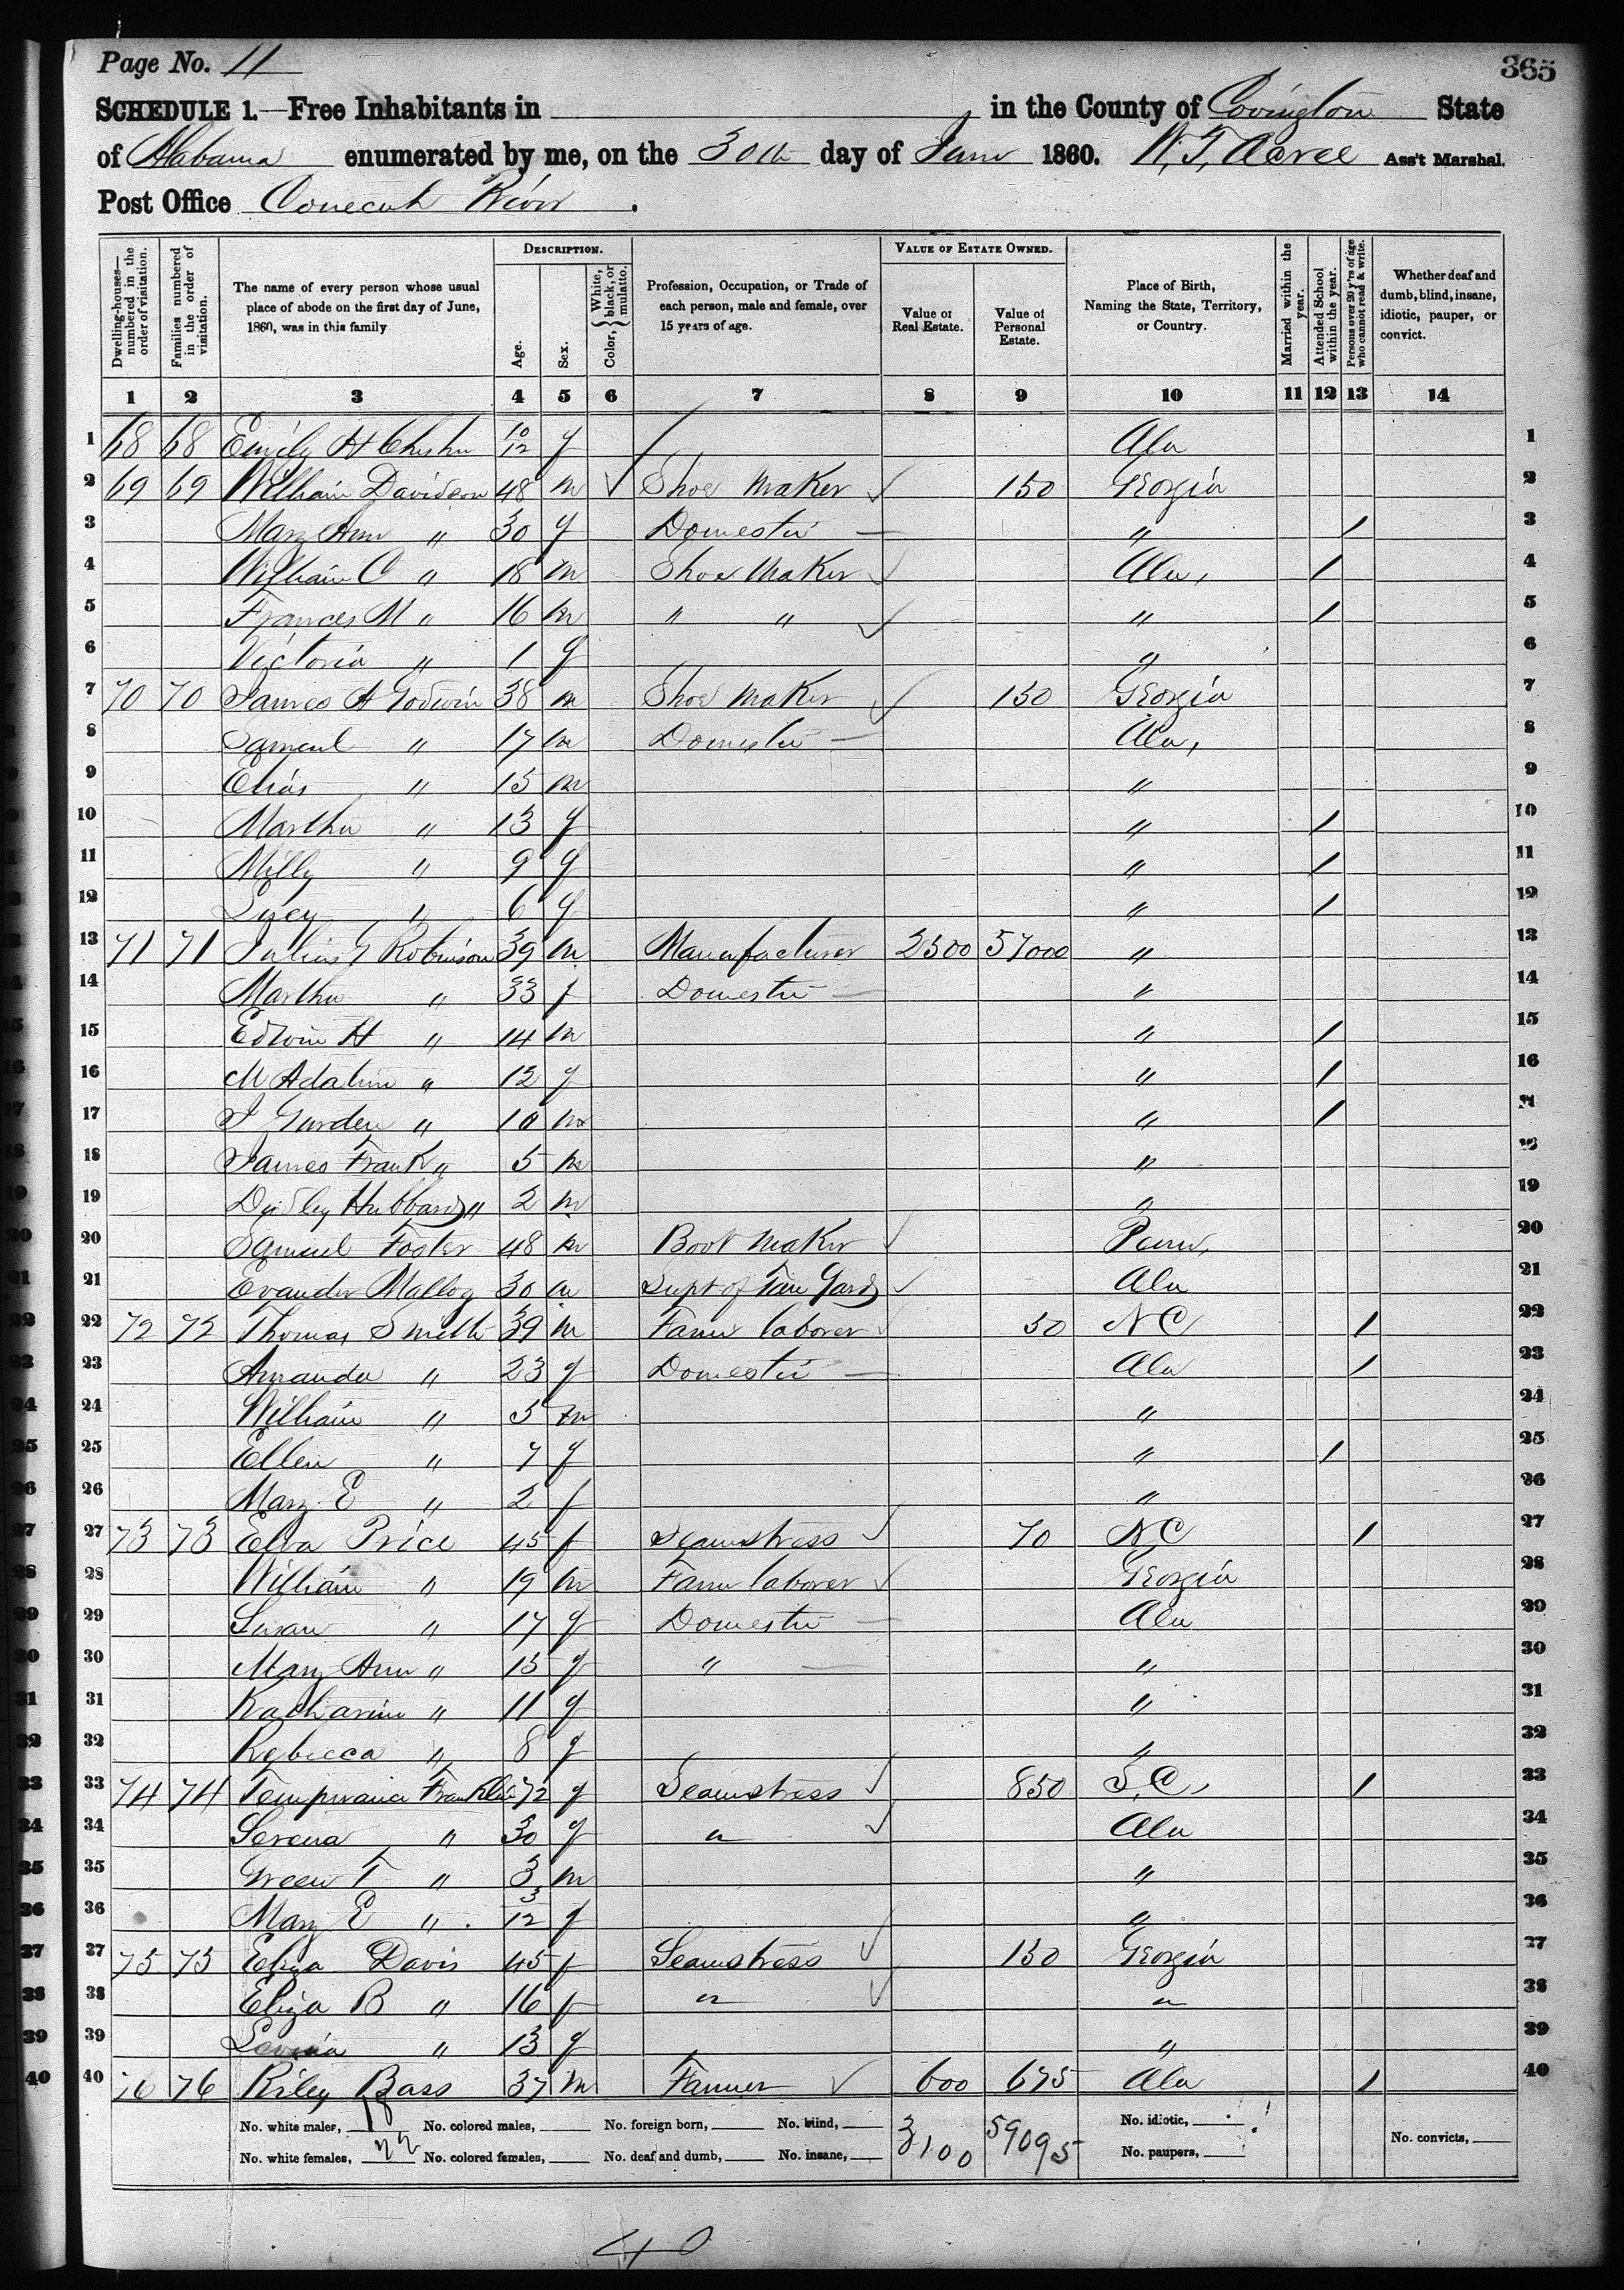 Page No. 11
365
SCHEDULE 1.—Free Inhabitants in in the County of Covington State
of Alabama enumerated by me, on the 30th day of June 1860. W. T. Acree Ass't Marshal.
Post Office Conecuh River.
Dwelling-houses—numbered in the order of visitation. Families numbered in the order of visitation. The name of every person whose usual place of abode on the first day of June, 1860, was in this family. DESCRIPTION. Age. Sex. Color, White, black, or mulatto. Profession, Occupation, or Trade of each person, male and female, over 15 years of age. VALUE OF ESTATE OWNED. Value of Real Estate. Value of Personal Estate. Place of Birth, Naming the State, Territory, or Country. Married within the year. Attended School within the year. Persons over 20 y'rs of age who cannot read & write. Whether deaf and dumb, blind, insane, idiotic, pauper, or convict.
1 2 3 4 5 6 7 8 9 10 11 12 13 14
1 68 68 Emily H 10/12 f Ala 1
2 69 69 William Davidson 48 m Shoe Maker 150 Georgia 2
3 Mary Ann " 30 f Domestic " / 3
4 William C " 18 m Shoe Maker Ala, / 4
5 Frances M " 16 m " " " / 5
6 Victoria " 1 f " 6
7 70 70 James A Godwin 38 m Shoe Maker 150 Georgia 7
8 Samuel " 17 m Domestic Ala, 8
9 Elias " 15 m " 9
10 Martha " 13 f " / 10
11 Milly " 9 f " / 11
12 Lucy " 6 f " / 12
13 71 71 Julius G Robinson 39 m Manufacturer 2500 57000 " 13
14 Martha " 33 f Domestic " 14
15 Edwin H " 14 m " / 15
16 M Adaline " 12 f " / 16
17 J Gurden " 10 m " / 17
18 James Frank " 5 m " 18
19 Dudley Hubbard " 2 m " 19
20 Samuel Foster 48 m Boot Maker Penn, 20
21 Evander Malloy 30 m Supt of Tan Yard Ala 21
22 72 72 Thomas Smith 39 m Farm laborer 50 NC / 22
23 Amanda " 23 f Domestic Ala / 23
24 William " 5 m " 24
25 Ellen " 7 f " / 25
26 Mary E " 2 f " 26
27 73 73 Price 45 f Seamstress 70 NC / 27
28 William " 19 m Farm laborer Georgia 28
29 Susan " 17 f Domestic Ala 29
30 Mary Ann " 15 f " " 30
31 Katharine " 11 f " 31
32 Rebecca " 8 f " 32
33 74 74 Temperance Franklin 72 f Seamstress 850 S.C, / 33
34 Serena " 30 f " Ala 34
35 Green T " 3 m " 35
36 Mary E " 3/12 f " 36
37 75 75 Eliza Davis 45 f Seamstress 150 Georgia 37
38 Eliza B " 16 f " " 38
39 Lavinia " 13 f " 39
40 76 76 Riley Bass 37 m Farmer 600 675 Ala / 40
No. white males, 18 No. colored males, No. foreign born, No. blind, 3100 59095 No. idiotic,
No. white females, 22 No. colored females, No. deaf and dumb, No. insane, No. paupers, No. convicts,
40